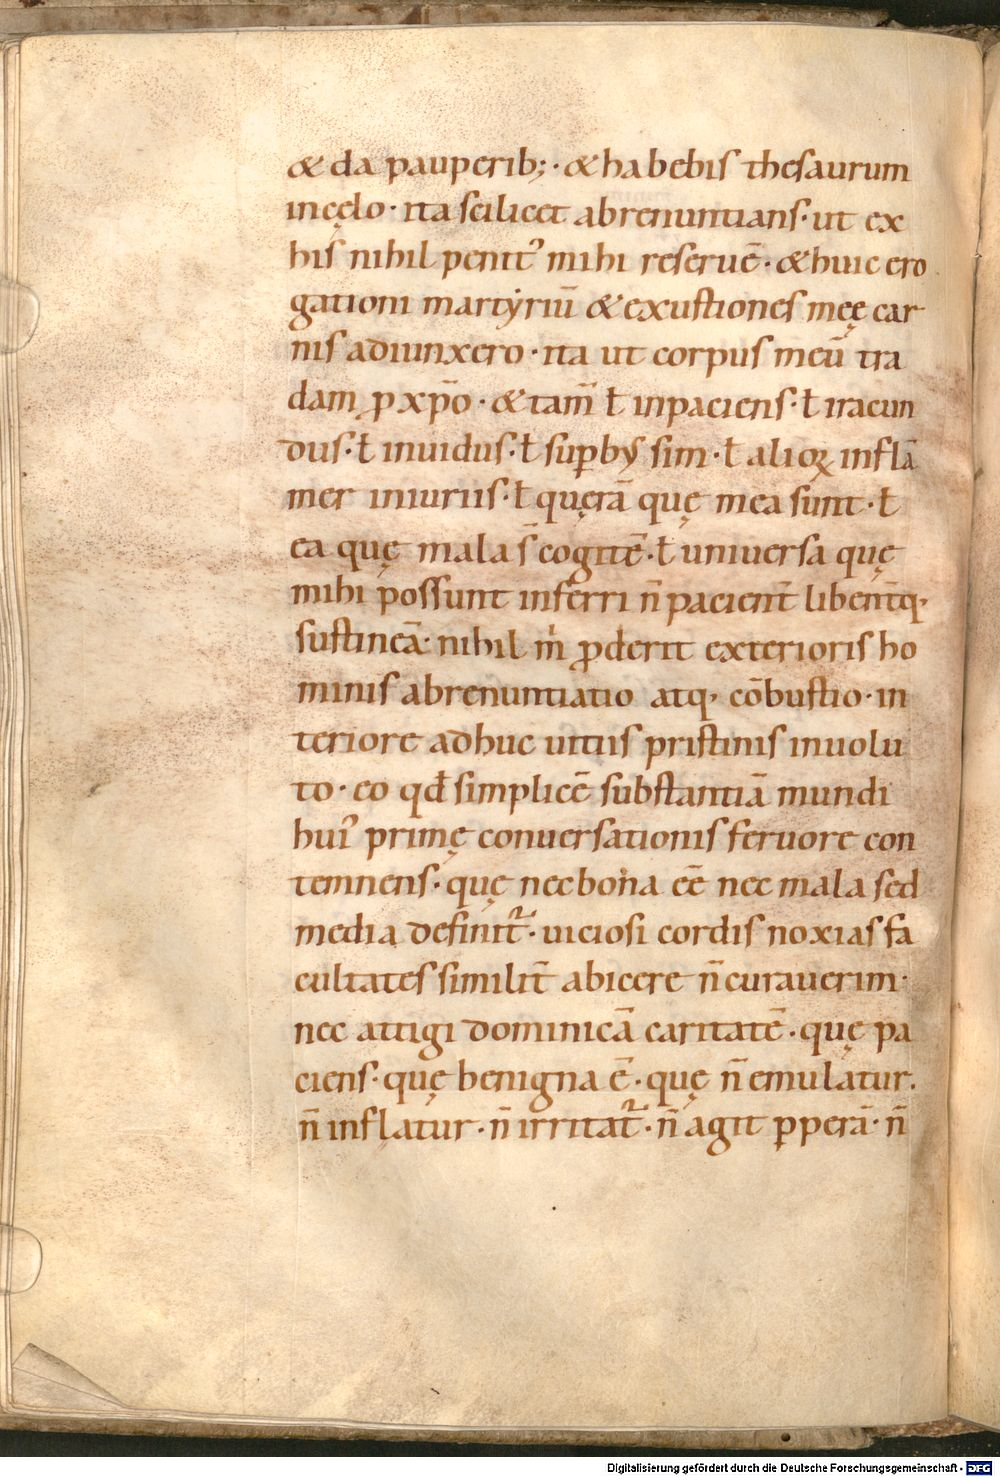 & da pauperib;· & habebis thesaurum
incęlo· ita scilicet abrenuntians· ut ex
his nihil penit᾽ mihi reseruē· & huic ero
gationi martyriū & exustiones meę car
nis adiunxero· ita ut corpus meū tra
dam ꝓ xp̄o· & tam̄ ł inpaciens· ł iracun
dus· ł inuidus· ł suꝑbꝰ sim· ł alioꝝ inflā
mer iniuriis· ł quęrā quę mea sunt· ł
ea quę mala s̄ cogitē· ł uniuersa quę
mihi possunt inferri n̄ pacient̄ libent̄q·
sustineā· nihil m̍ ꝓderit exterioris ho
minis abrenuntiatio atq· cōbustio· in
teriore adhuc uitiis pristinis inuolu
to· eo qđ simplicē substantiā mundi
hui᾽ primę conuersationis feruore con
temnens· quę nec bona eē nec mala sed
media definit᷑· uiciosi cordis noxias fa
cultates similit̄ abicere n̄ curauerim·
nec attigi dominicā caritatē· quę pa
ciens· quę benigna ē· quę n̄ emulatur·
n̄ inflatur· n̄ irritat᷑· n̄ agit ꝑperā· n̄
Digitalisierung gefördert durch die Deutsche Forschungsgemeinschaft - DFG